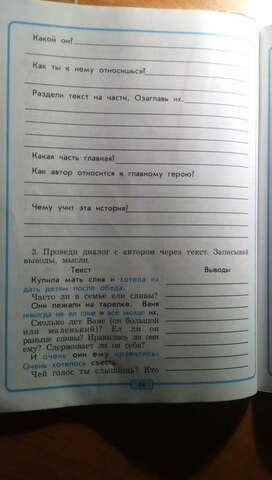 Какой он?
Как ты к нему относишься?
Раздели текст на части. Озаглавь их.
Какая часть главная?
Как автор относится к главному герою?
Чему учит эта история?
3. Проведи диалог с автором через текст. Записывай
выводы, мысли.
Текст Выводы
Купила мать слив и хотела их
дать детям после обеда.
Часто ли в семье ели сливы?
Они лежали на тарелке. Ваня
никогда не ел слив и всё нюхал их.
Сколько лет Ване (он большой
или маленький)? Ел ли он
раньше сливы? Нравились ли они
ему? Сдерживает ли он себя?
И очень они ему нравились.
Очень хотелось съесть.
Чей голос ты слышишь? Кто